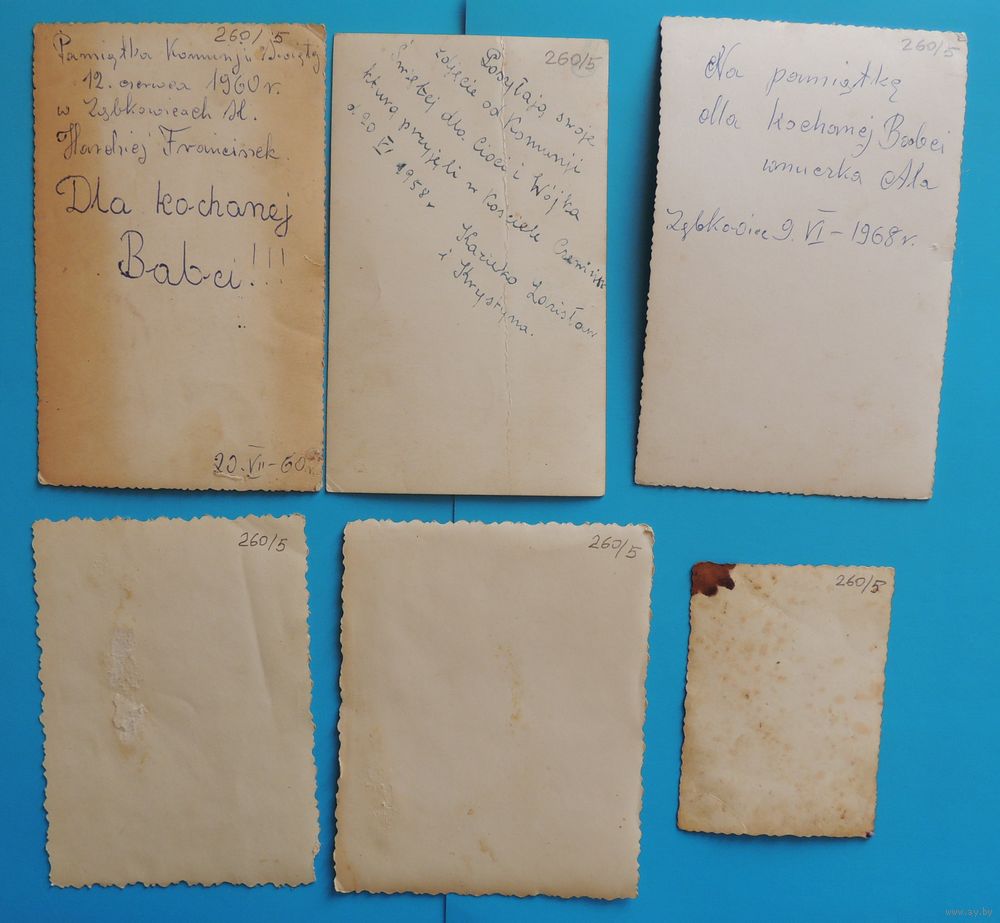 260/5
Pamiątka Komunji Świętej
12. czerwca 1960 r.
w Ząbkowicach Śl.
Franciszek.
Dla kochanej
Babci!!!
VII-60
260/5
Posyłają swoje
zdjęcie od Komunji
Świętej dla Cioci i Wójka
kturą przyjęli w Kościele
d. 20 VI 1958 r
i Krystyna.
260/5
Na pamiątkę
dla kochanej Babci
wnuczka Ala
9. VI - 1968 r.
260/5
260/5
260/5
www.ay.by